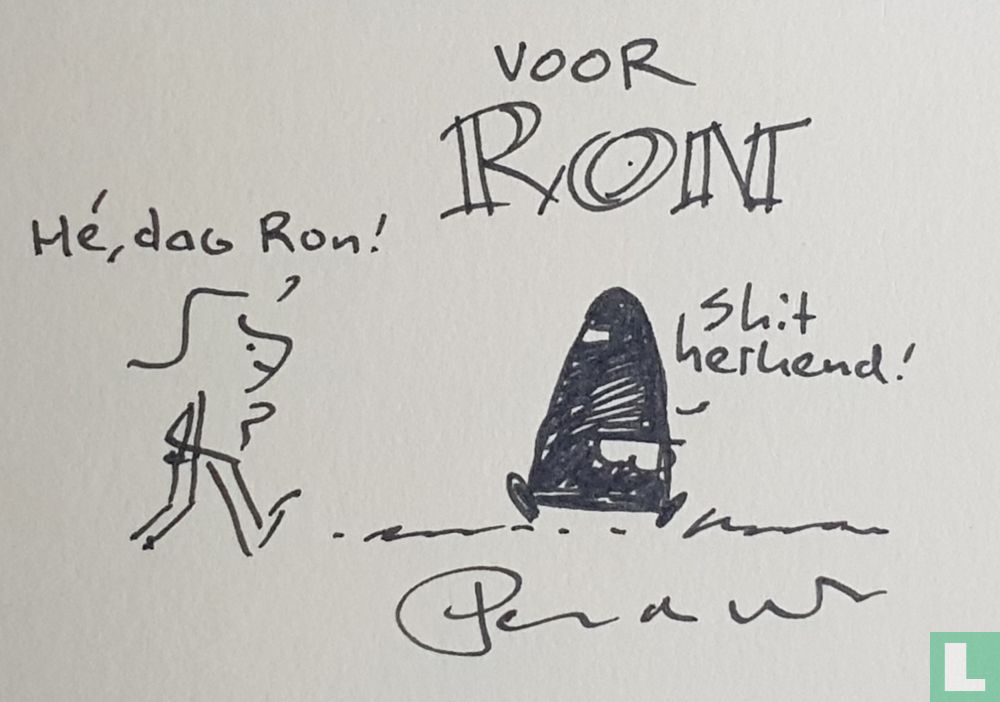 VOOR
RON
Hé, dag Ron!
Shit
herkend!
L